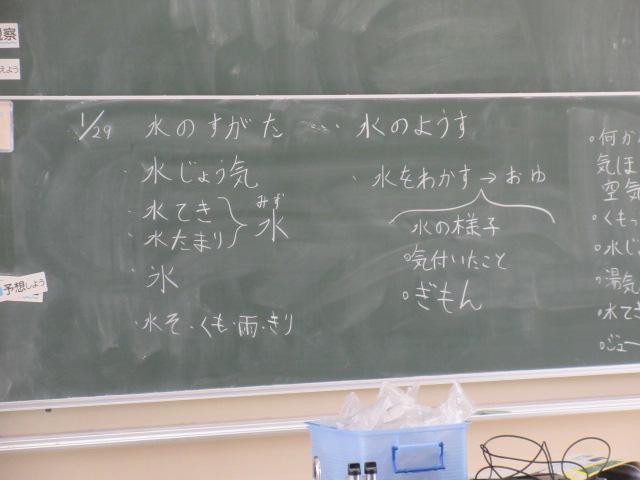 観察
えよう
1/29 水のすがた ・・・ 水のようす
・水じょう気
・水てき
・水たまり
みず
水
・氷
・水そ・くも・雨・きり
予想しよう
・水をわかす→おゆ
水の様子
○気付いたこと
○ぎもん
○何か
気ほ
空気
○くもっ
○水じ
○湯気
○水てき
○ジュー